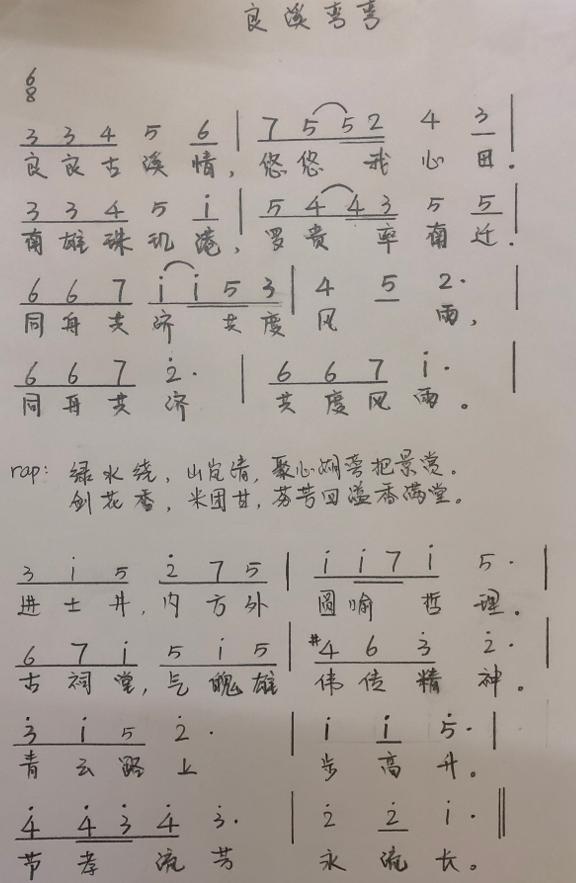 良溪弯弯
6
8
3 3 4 5 6 | 7 5 5 2 4 3 |
良良古溪情，悠悠 我心田.
3 3 4 5 i | 5 4 4 3 5 5 |
南雄珠玑港，罗贵 率南迁.
6 6 7 i i 5 3 | 4 5 2· |
同舟共济 共度风 雨，
6 6 7 2̇· | 6 6 7 i· |
同舟共济 共度风雨。
rap: 绿水绕，山岚清，聚心湖旁把景赏。
剑花香，米团甘，芬芳四溢香满堂。
3 i 5 2̇ 7 5 | i i 7 i 5· |
进士井，内方外 圆喻 哲理。
6 7 i 5 i 5 | #4 6 3̇ 2̇· |
古祠堂，气魄雄 伟传精神。
3̇ i 5 2̇· | i i 5̇· |
青云路上 步高升。
4̇ 4̇ 3̇ 4̇ 3̇· | 2̇ 2̇ i· ||
节孝 流芳 永流长。